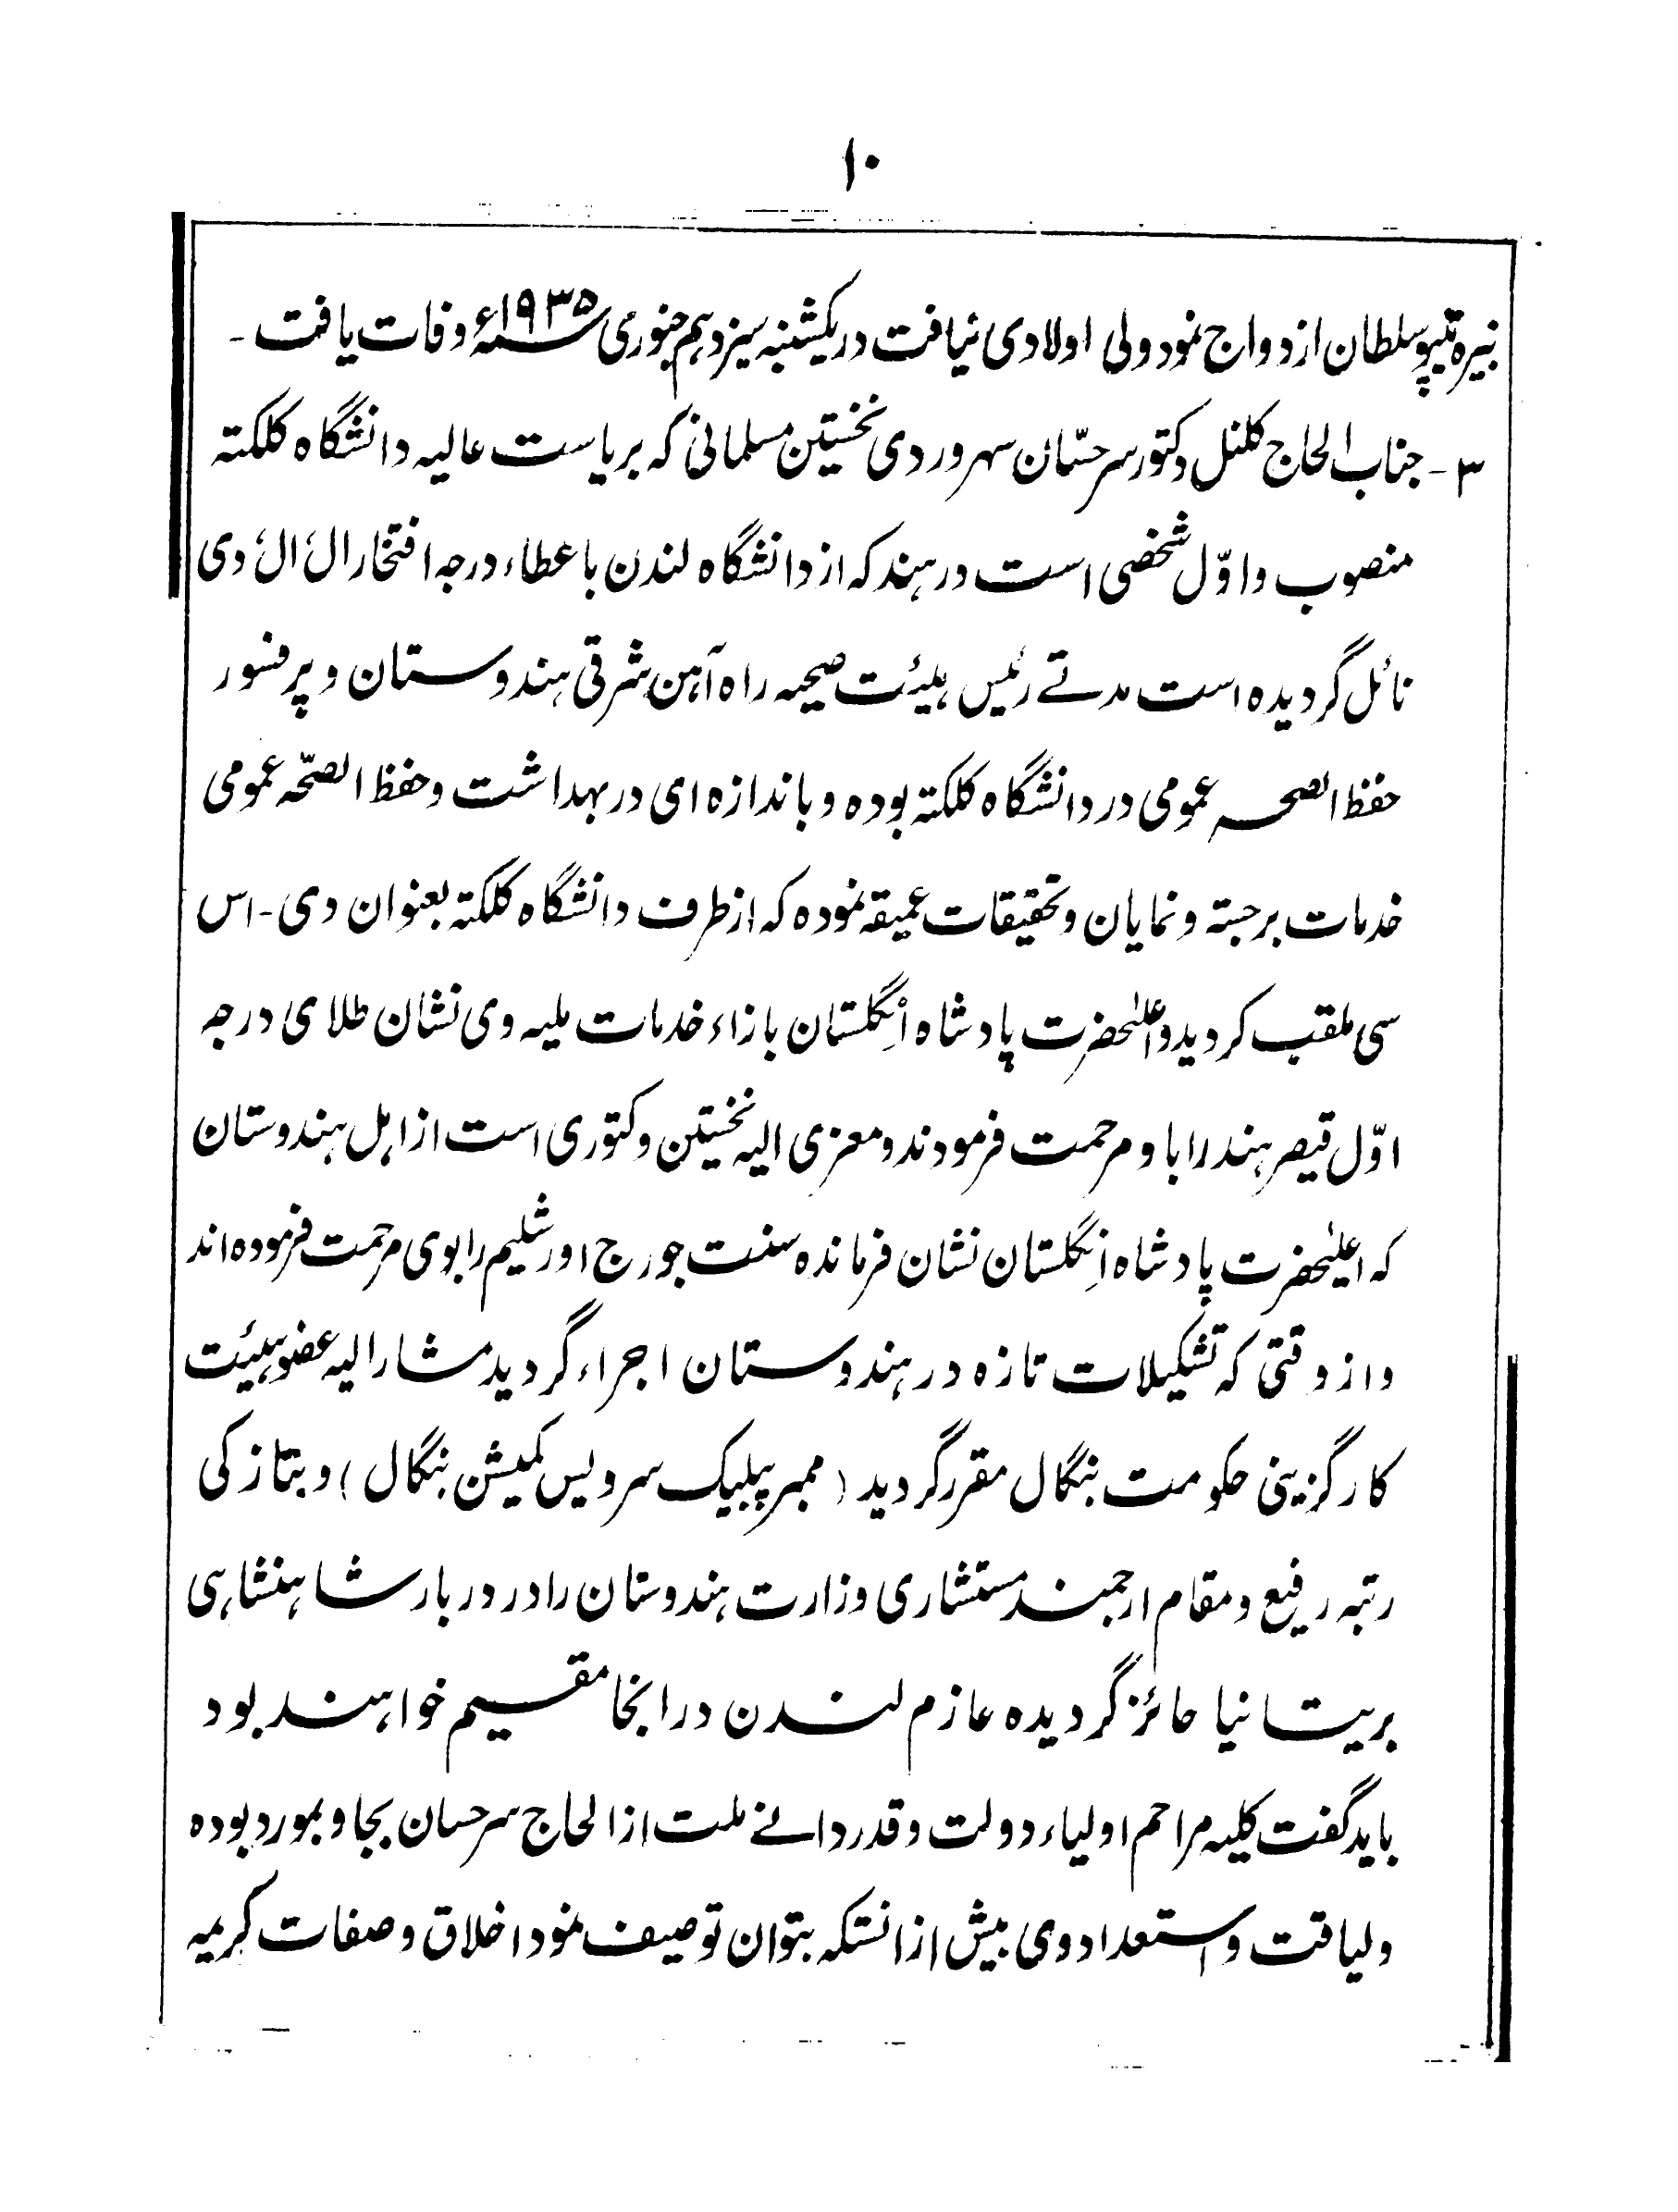 ۱۰
نبیره تیپو سلطان ازدواج نمود ولی اولادی نیافت در یکشنبه سیزدهم جنوری ۱۹۳۵ء وفات یافت ـ
۳ ـ جناب الحاج کلنل دکتور سر حسّان سهروردی نخستین مسلمانی که بریاست عالیه دانشگاه کلکته
منصوب و اوّل شخصی است در هند که از دانشگاه لندن باعطاء درجه افتخار الٔ الٔ دی
نائل گردیده است مدتے رئیس هیئت صحیه راه آهن شرقی هندوستان و پرفسور
حفظ الصحه عمومی در دانشگاه کلکته بوده و باندازه ای در بهداشت و حفظ الصحّه عمومی
خدمات برجسته و نمایان و تحقیقات عمیقه نموده که از طرف دانشگاه کلکته بعنوان دی ـ اس
سی ملقب کردید و اعلیٰحضرت پادشاه اِنگلستان بازاء خدمات ملیه وی نشان طلای درجه
اوّل قیصر هند را باو مرحمت فرمودند و معزی الیه نخستین وکتوری است از اهل هندوستان
که اعلیٰحضرت پادشاه اِنگلستان نشان فرمانده سنت جورج اورشلیم را بوی مرحمت فرموده اند
و از وقتی که تشکیلات تازه در هندوستان اجراء گردید مشارالیه عضو هیئت
کارگزینی حکومت بنگال مقرر گردید (ممبر پبلیک سرویس کمیشن بنگال) و بتازکی
رتبه رفیع و مقام ارجمند مستشاری وزارت هندوستان را در دربار شاهنشاهی
بریتانیا حائز گردیده عازم لندن در انجا مقیم خواهند بود
باید گفت کلیه مراحم اولیاء دولت و قدردانے ملت از الحاج سر حسان بجا و بمورد بوده
و لیاقت و استعداد وی بیش از انستکه بتوان توصیف نمود اخلاق و صفات کریمه